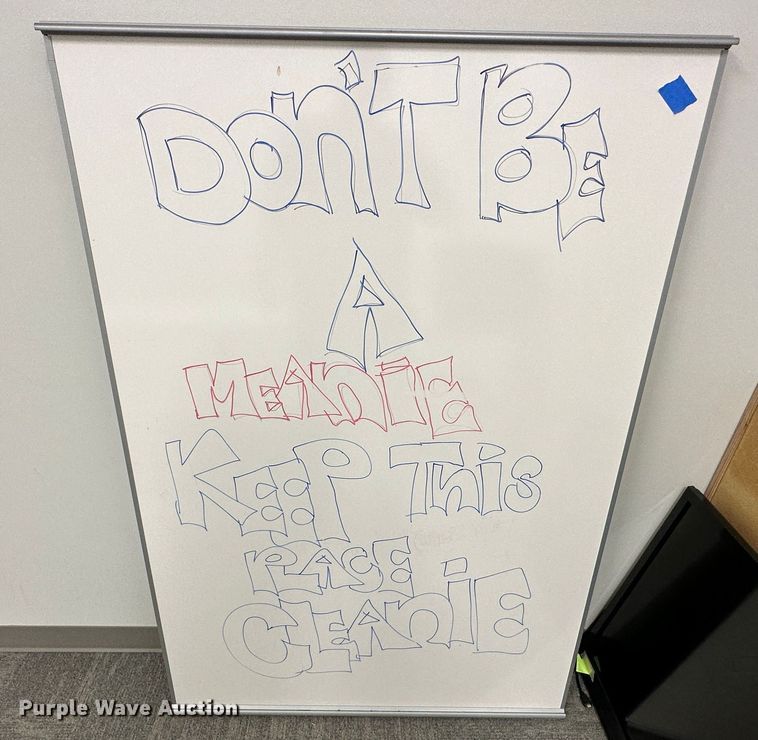 DON'T BE
A
MEANIE
KEEP THIS
PLACE
CLEANIE
Purple Wave Auction